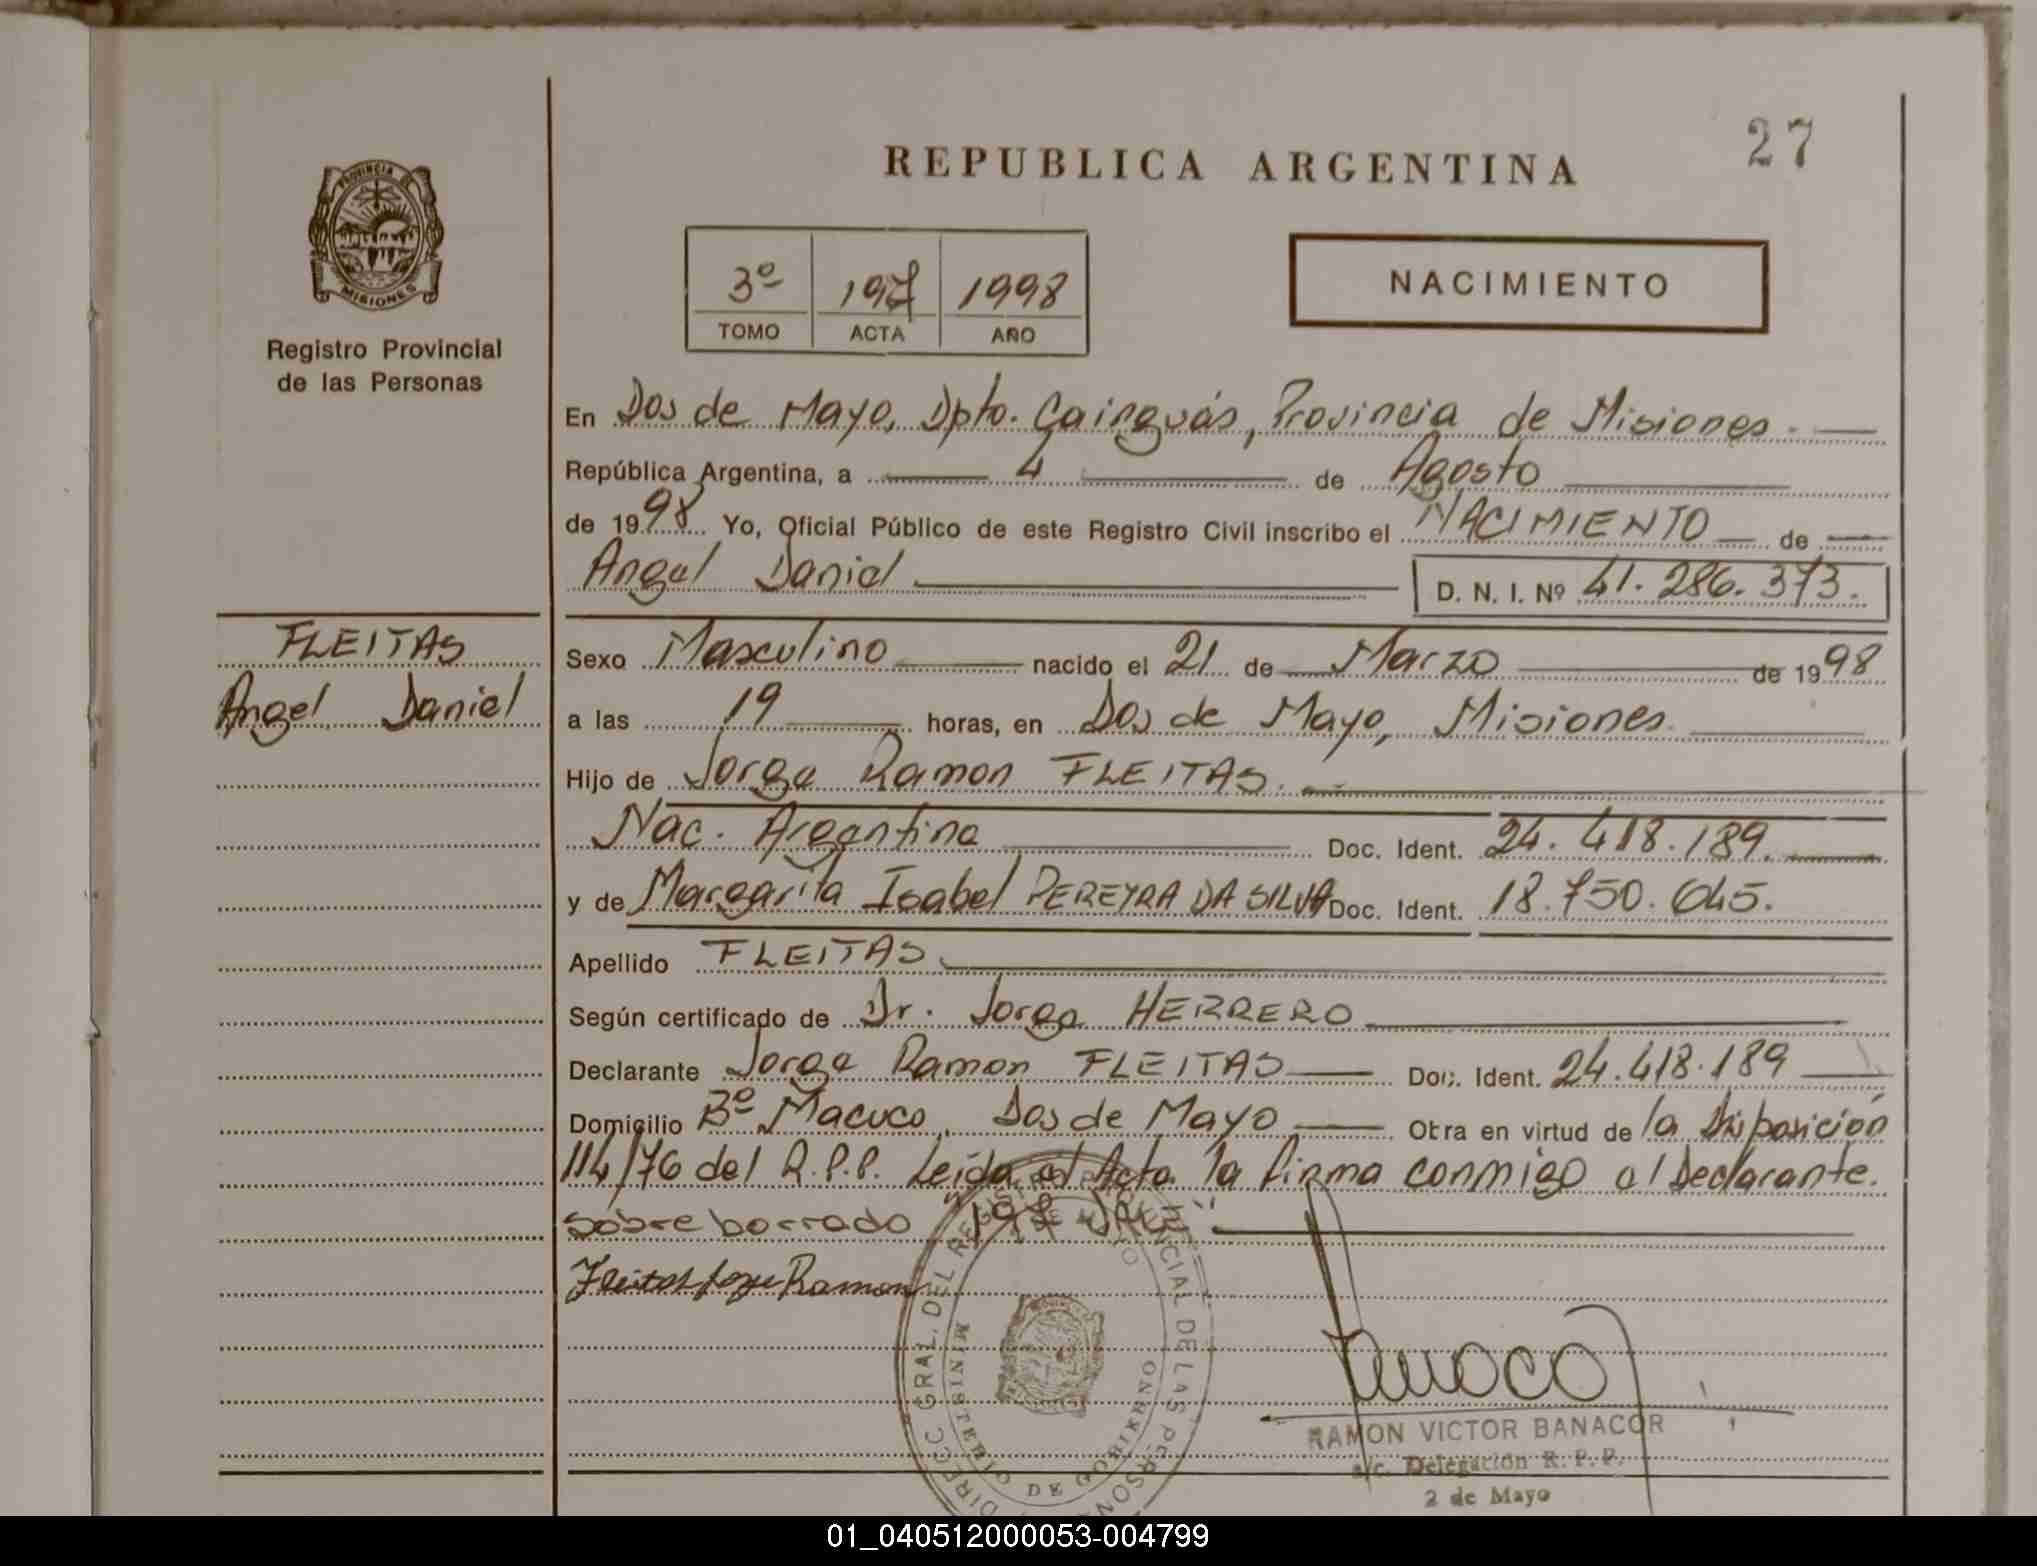 27
REPUBLICA ARGENTINA
PROVINCIA DE
MISIONES
Registro Provincial
de las Personas
3º 197 1998
TOMO ACTA AÑO
NACIMIENTO
En Dos de Mayo, Dpto. Cainguás, Provincia de Misiones.
República Argentina, a 4 de Agosto
de 1998 Yo, Oficial Público de este Registro Civil inscribo el NACIMIENTO de
Angel Daniel D. N. I. Nº 41.286.373.
FLEITAS
Angel Daniel
Sexo Masculino nacido el 21 de Marzo de 1998
a las 19 horas, en Dos de Mayo, Misiones.
Hijo de Jorge Ramon FLEITAS.
Nac. Argentina Doc. Ident. 24.418.189.
y de Margarita Isabel PEREYRA DA SILVA Doc. Ident. 18.750.645.
Apellido FLEITAS
Según certificado de Dr. Jorge HERRERO
Declarante Jorge Ramon FLEITAS Doc. Ident. 24.418.189
Domicilio Bº Macuco, Dos de Mayo Otra en virtud de la Disposición
114/76 del R.P.P. Leída el Acta la firma conmigo el Declarante.
Sobre borrado "197
Fleitas Jorge Ramon
DIRECC. GRAL. DEL REGISTRO PROVINCIAL DE LAS PERSONAS
MINISTERIO DE GOBIERNO
RAMON VICTOR BANACOR
a/c. Delegación R.P.P.
2 de Mayo
01_040512000053-004799